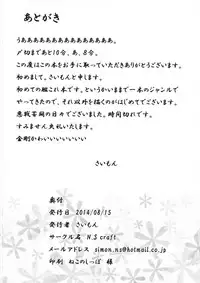 あとがき
うあああああああああああああああ。
〆切まであと10分、あ、8分。
この度はこの本をお手に取っていただきありがとうございます。
初めまして、さいもんと申します。
初めての艦これ本です。というかいままで一本のジャンルで
やってきたので、それ以外を描くのがはじめてでして。
悪戦苦闘の日々でございました。時間切れです。
すみません失礼いたします。
金剛かわいいいいいいい
さいもん
奥付
発行日 2014/08/15
発行者 さいもん
サークル名 N.S craft.
メールアドレス simon_ns@hotmail.co.jp
印刷 ねこのしっぽ 様